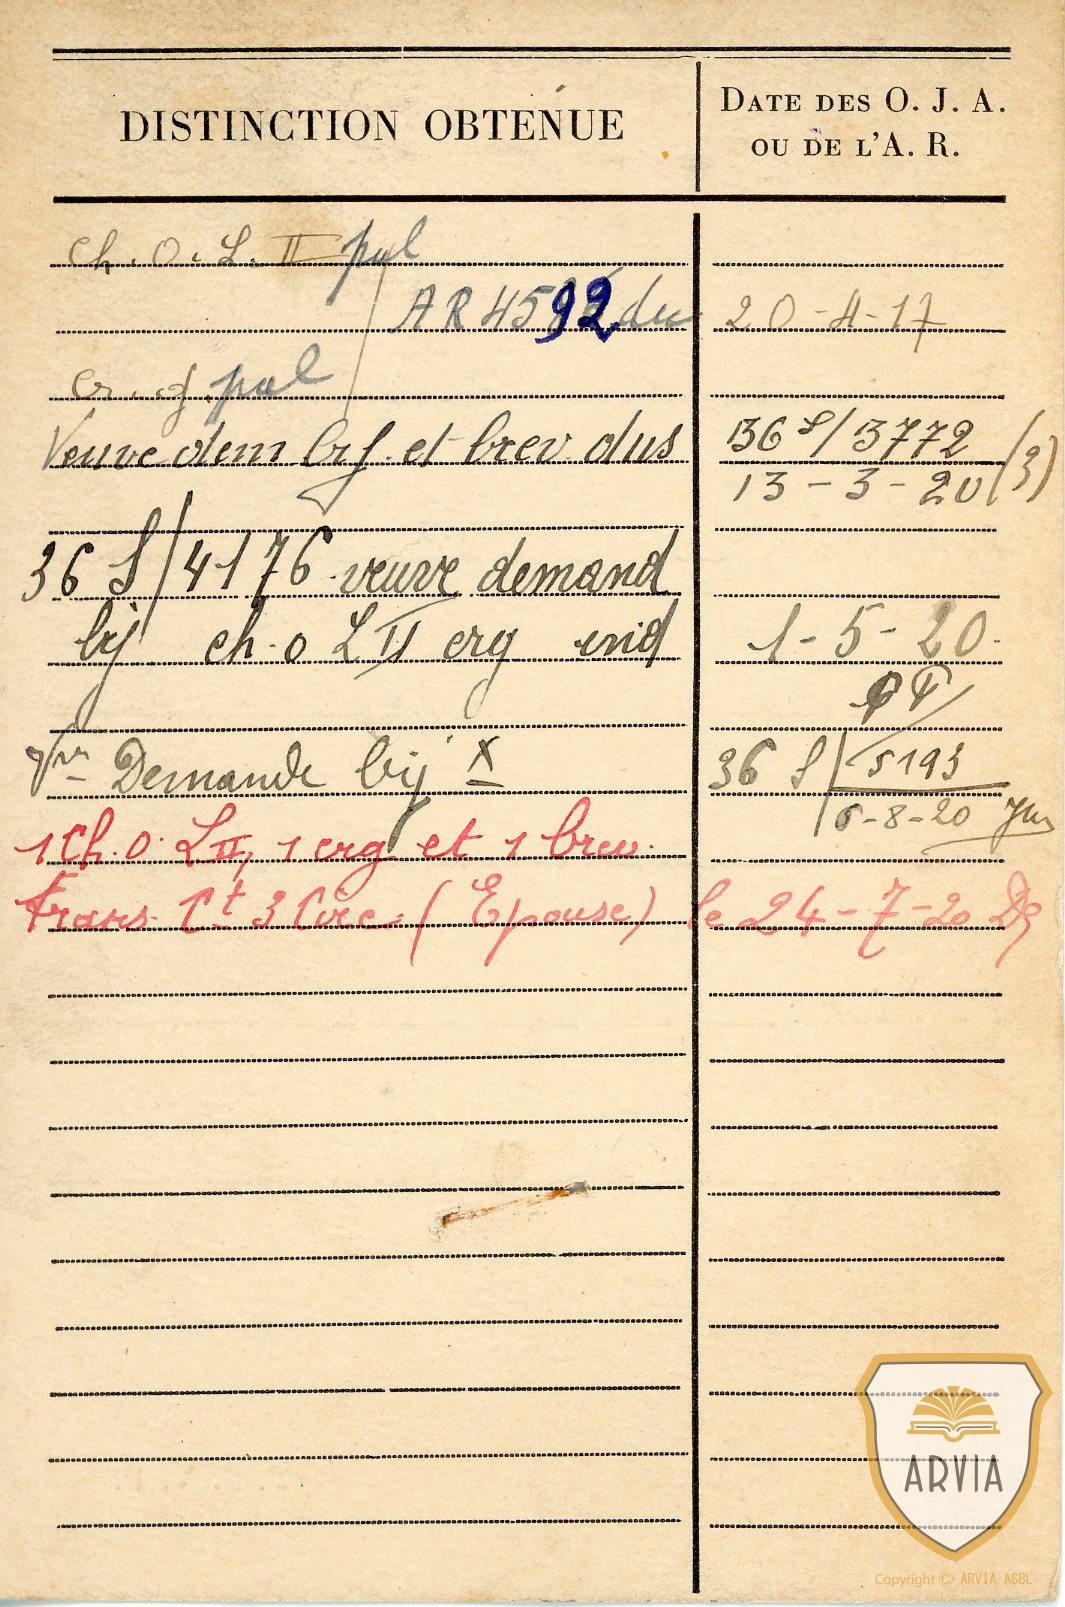 DISTINCTION OBTENUE
DATE DES O. J. A.
OU DE L'A. R.
Ch. O. L. II pal
AR 4592 du 20-4-17
cr. g. pal
Veuve dem bij et brev dus 136 S/3772 (3)
13-3-20
36 S/4176 veuve demand
bij ch. o L II crg 1-5-20.
Vve Demande bij x 36 S/5193
6-8-20
1 Ch. O. L II, 1 crg et 1 brev.
trans. Ct 3 Circ. (Epouse) le 24-7-20
ARVIA
Copyright © ARVIA ASBL